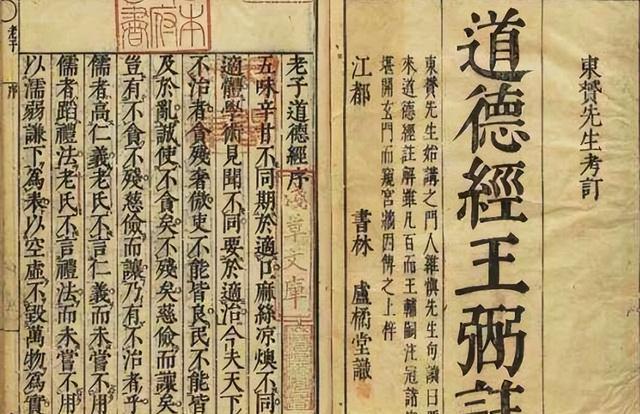 東贇先生考訂
道德經王弼註
東贇先生始講之門人維愼先生句讀曰
來道德經註解雖凡百而王輔嗣注冠諸
堪開玄門而窺宮牆因傳之上梓
江都 書林 盧橘堂識
老子道德經序
五味辛甘不同期於適口麻絲凉燠不同
適體學術見聞不同要於適治今夫天下
不治者貪殘奢傲吏不能皆良民不能
及於亂誠使不貪矣不殘矣慈儉而讓矣
豈有不貪不殘慈儉而讓乃有不治者乎
儒者高仁義老氏不言仁義而未嘗不用
儒者蹈禮法老氏不言禮法而未嘗不用
以濡弱謙下爲表以空虛不毀萬物爲實
老子 序
草文庫